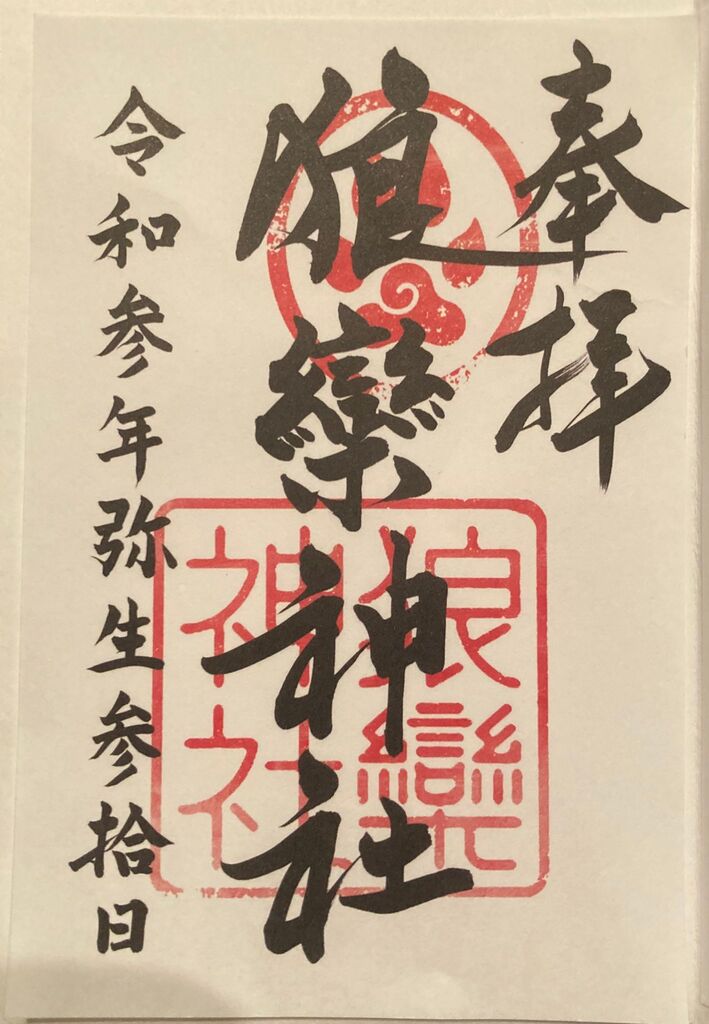 奉拝
狼欒神社
令和参年弥生参拾日
狼欒
神社